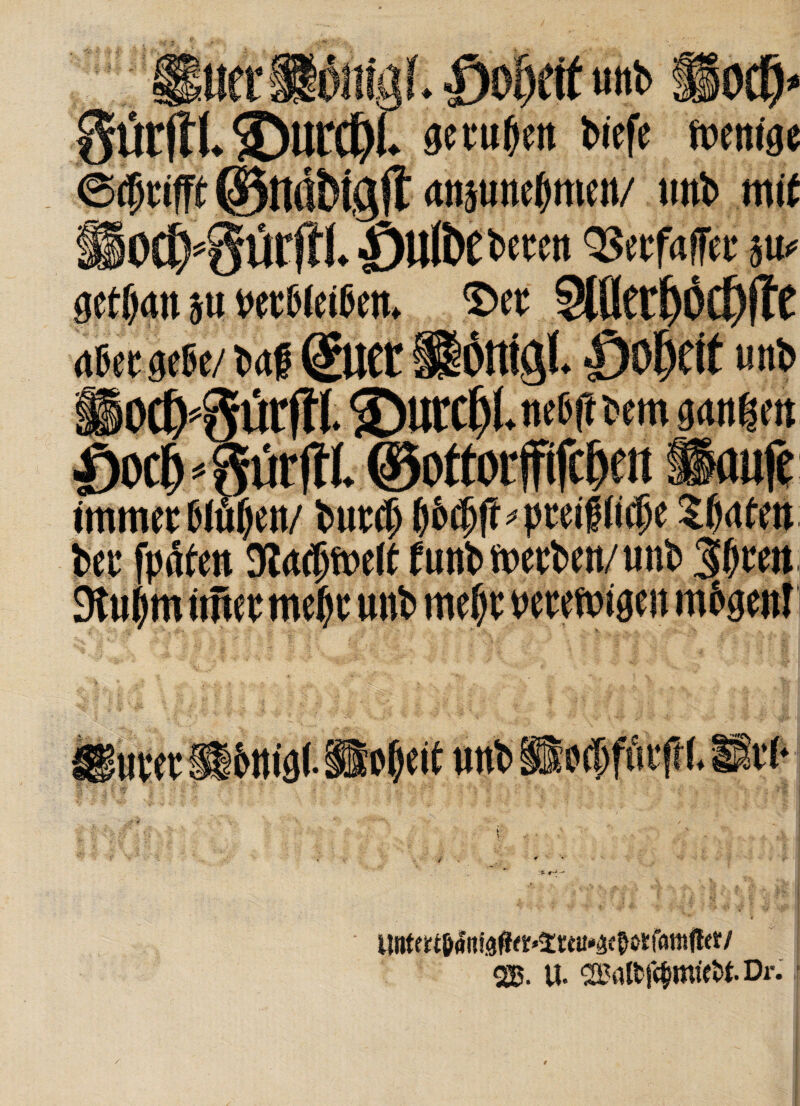 Euer Königl. Hoheit und Hoch-
Fürstl. Durchl. geruhen diese wenige
Schrifft Gnädigst anzunehmen/ und mit
Hoch-Fürstl. Hulde deren Verfasser zu-
gethan zu verbleiben. Der Allerhöchste
aber gebe/ daß Euer Königl. Hoheit und
Hoch-Fürstl. Durchl. nebst dem gantzen
Hoch-Fürstl. Gottorffischen Hause
immer blühen/ durch höchst-preißliche Thaten
der späten Nachwelt kund werden/ und Ihren
Ruhm im̃er mehr und mehr verewigen mögen!
Eurer Königl. Hoheit und Hochfürstl. Drl.
Unterthänigster-Treu-gehorsamster/
W. U. Waldschmiedt. Dr.